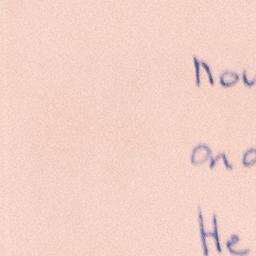 nou
on
He